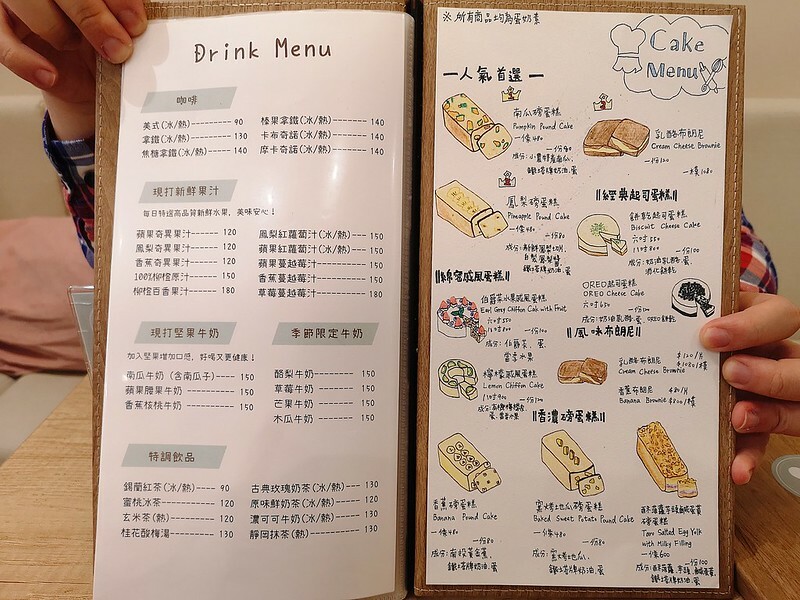 Drink Menu
咖啡
美式(冰/熱)-------- 90
拿鐵(冰/熱)-------- 130
焦糖拿鐵(冰/熱)--- 140
榛果拿鐵(冰/熱)--- 140
卡布奇諾(冰/熱)--- 140
摩卡奇諾(冰/熱)--- 140
現打新鮮果汁
每日特選高品質新鮮水果，美味安心！
蘋果奇異果汁------ 120
鳳梨奇異果汁------ 120
香蕉奇異果汁------ 120
100%柳橙原汁------ 150
柳橙百香果汁------ 180
鳳梨紅蘿蔔汁(冰/熱)-- 150
蘋果紅蘿蔔汁(冰/熱)-- 150
蘋果蔓越莓汁---------- 150
香蕉蔓越莓汁---------- 150
草莓蔓越莓汁---------- 180
現打堅果牛奶
加入堅果增加口感，好喝又更健康！
南瓜牛奶 (含南瓜子)--- 150
蘋果腰果牛奶---------- 150
香蕉核桃牛奶---------- 150
季節限定牛奶
酪梨牛奶------------ 150
草莓牛奶------------ 150
芒果牛奶------------ 150
木瓜牛奶------------ 150
特調飲品
錫蘭紅茶(冰/熱)---- 90
蜜桃冰茶------------ 120
玄米茶(熱)--------- 120
桂花酸梅湯---------- 130
古典玫瑰奶茶(冰/熱)--- 130
原味鮮奶茶(冰/熱)---- 120
濃可可牛奶(冰/熱)---- 130
靜岡抹茶(熱)--------- 130
※ 所有商品均為蛋奶素
Cake
Menu
一人氣首選一
南瓜磅蛋糕
Pumpkin Pound Cake
一條480
一份80
乳酪布朗尼
Cream Cheese Brownie
一份120
一模1080
鳳梨磅蛋糕
Pineapple Pound Cake
一條480
一份80
經典起司蛋糕
餅乾起司蛋糕
Biscuit Cheese Cake
六吋550
一份100
成分:奶油乳酪.蛋
消化餅乾
OREO起司蛋糕
OREO Cheese Cake
六吋650
一份100
成分:奶油乳酪.蛋 OREO餅乾
綿密戚風蛋糕
伯爵茶水果戚風蛋糕
Earl Grey Chiffon Cake with Fruit
六吋550
一份100
成分:伯爵茶、蛋
當季水果
檸檬戚風蛋糕
Lemon Chiffon Cake
一份100
風味布朗尼
乳酪布朗尼 $120/片
Cream Cheese Brownie $1080/模
香蕉布朗尼
Banana Brownie $800/模
香濃磅蛋糕
香蕉磅蛋糕
Banana Pound Cake
一條480
一份80
窯烤地瓜磅蛋糕
Baked Sweet Potato Pound Cake
一條480
一份80
成分:窯烤地瓜.
鐵塔牌奶油.蛋
磅蛋糕
Taro Salted Egg Yolk
with Milky Filling
一條600
一份100
鐵塔牌奶油.蛋